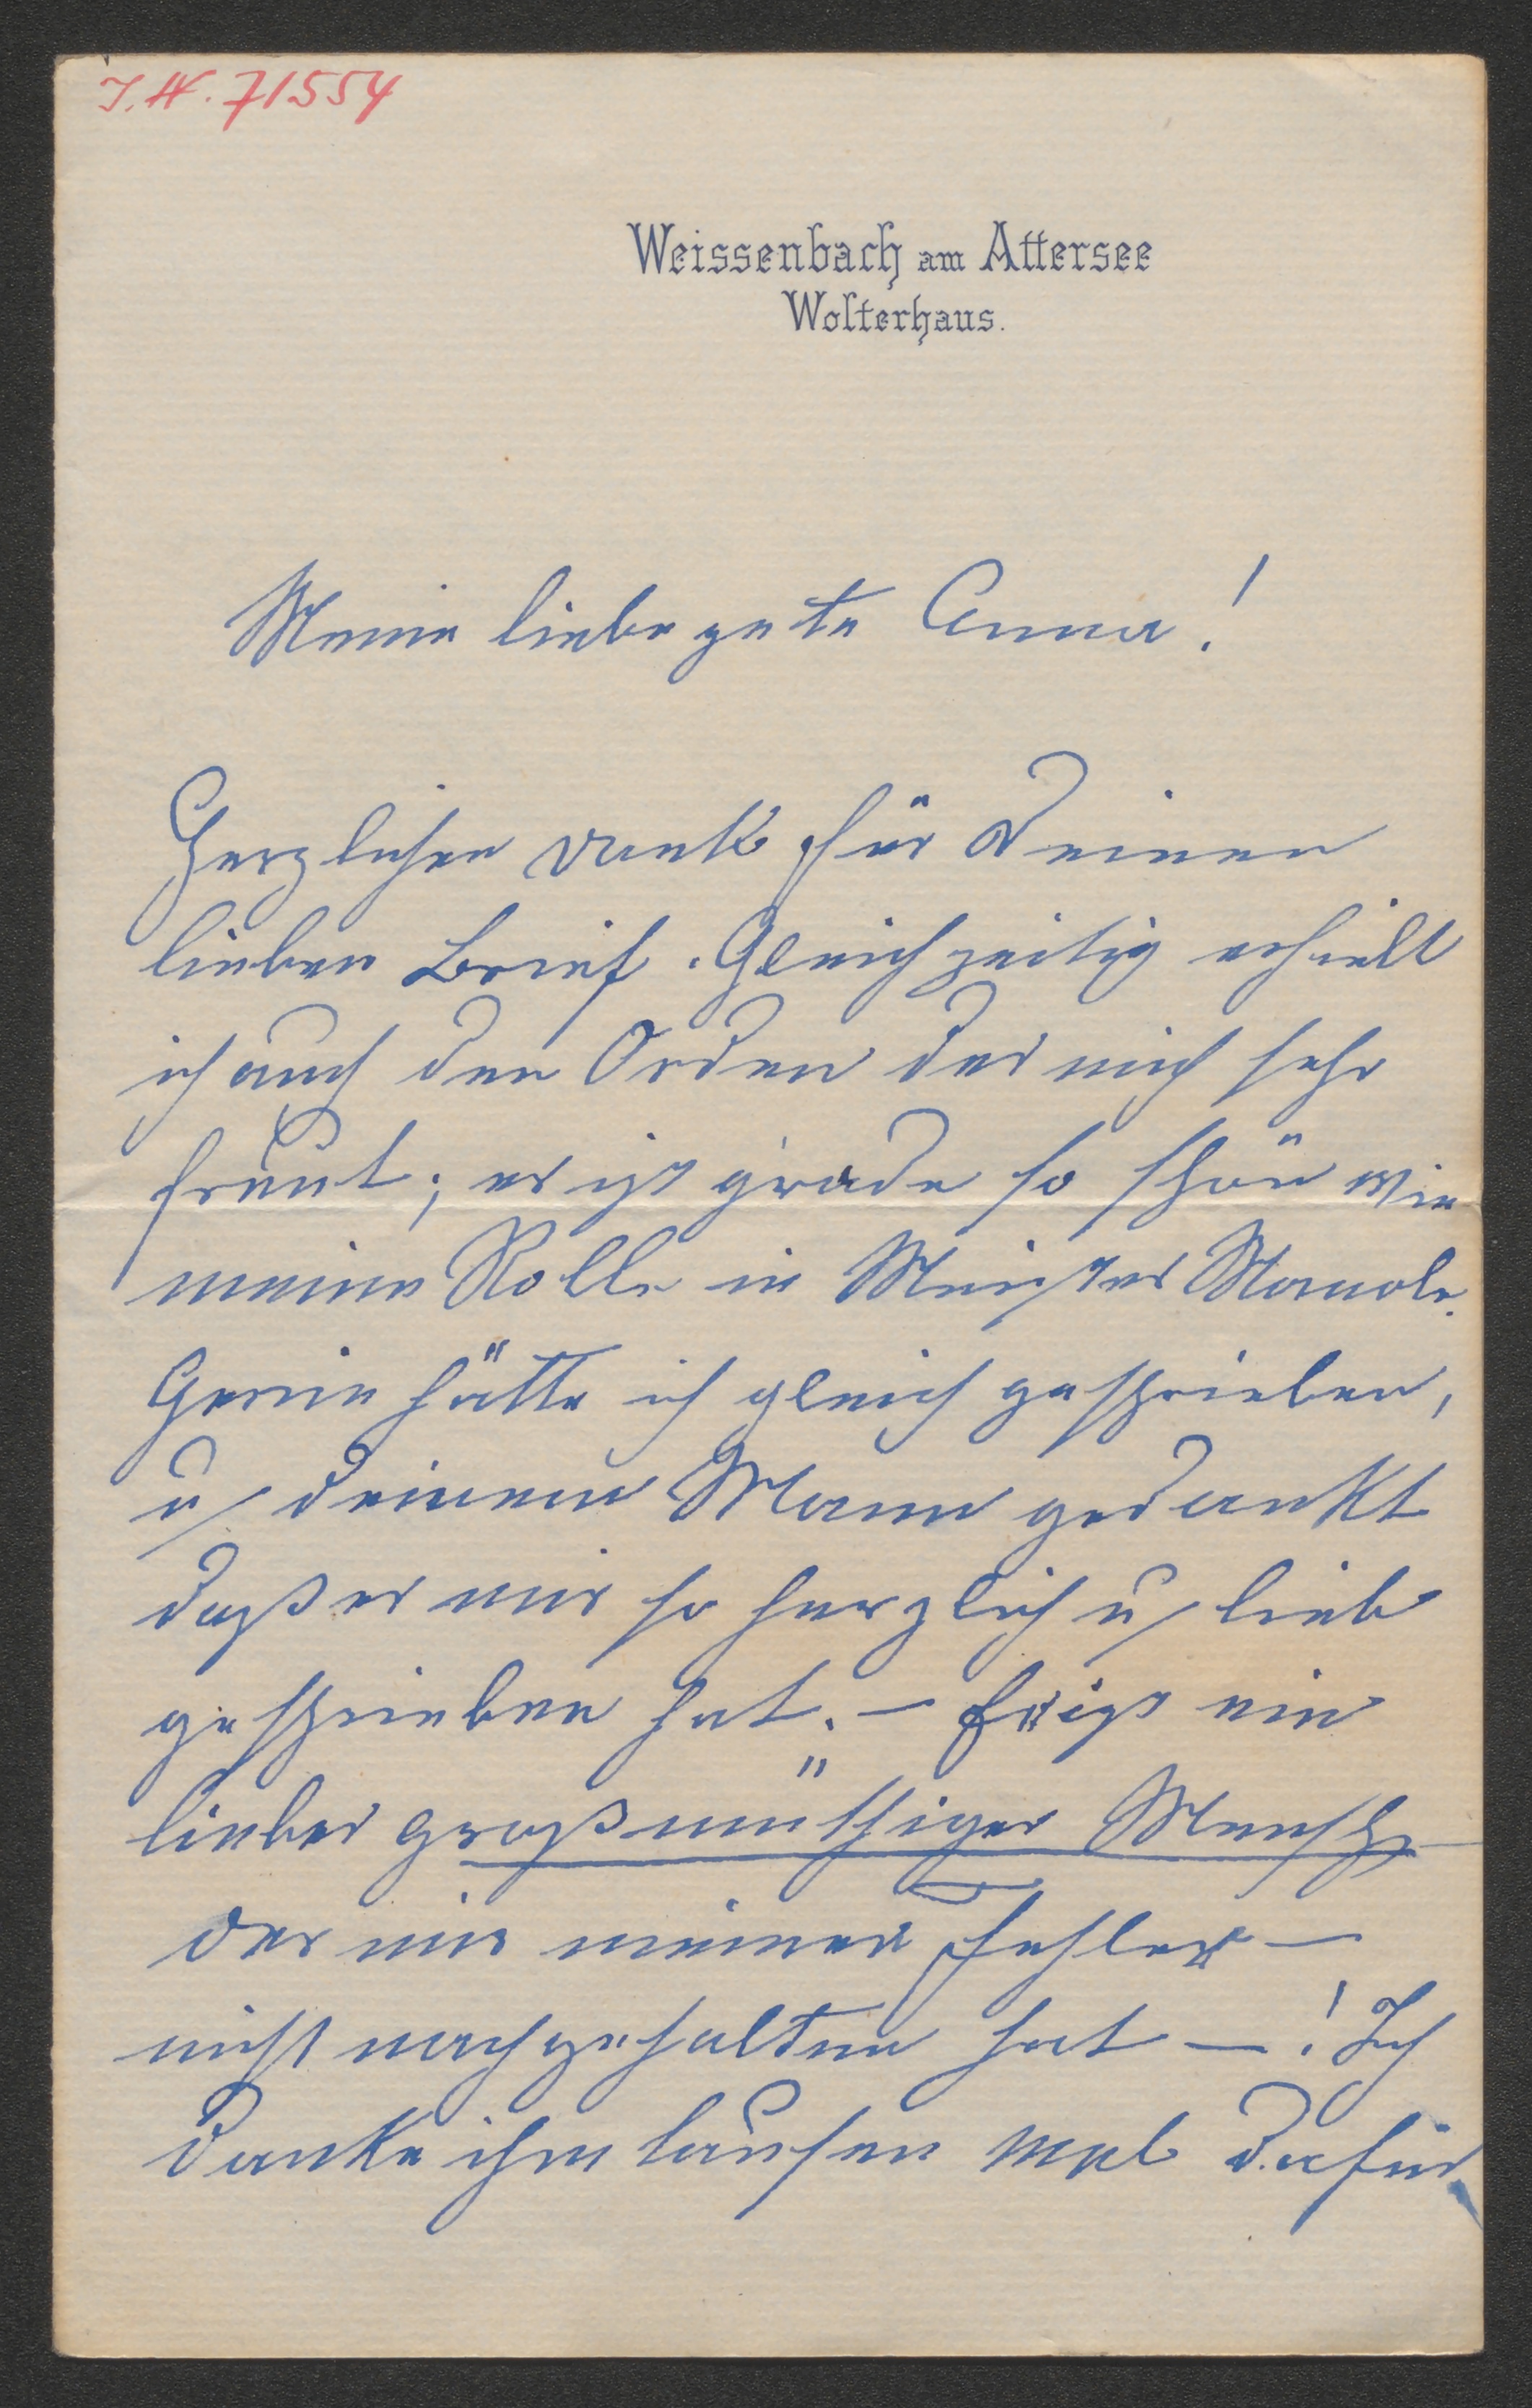 I.N. 71554
Weissenbach am Attersee
Wolterhaus.
Meine liebe gute Anna!
Herzlichen Dank für Deinen
lieben Brief. Gleichzeitig erhielt
ich auch den Orden der mich sehr
freut; er ist grade so schön wie
meine Rolle in Meister Manole.
Gerne hätte ich gleich geschrieben,
u deinem Mann gedankt
daß er mir so herzlich u lieb
geschrieben hat. – Er ist ein
lieber großmüthiger Mensch
der mir meinen Fehler –
nicht nachgehalten hat –! Ich
danke ihm tausen mal dafür